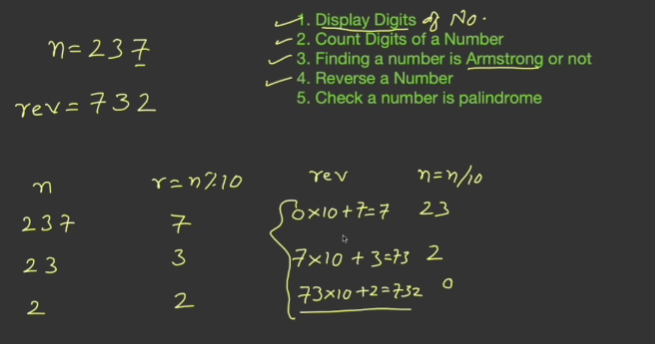 n=237
rev=732
1. Display Digits of No.
2. Count Digits of a Number
3. Finding a number is Armstrong or not
4. Reverse a Number
5. Check a number is palindrome
n r=n%10 rev n=n/10
237 7 0×10+7=7 23
23 3 7×10+3=73 2
2 2 73×10+2=732 0